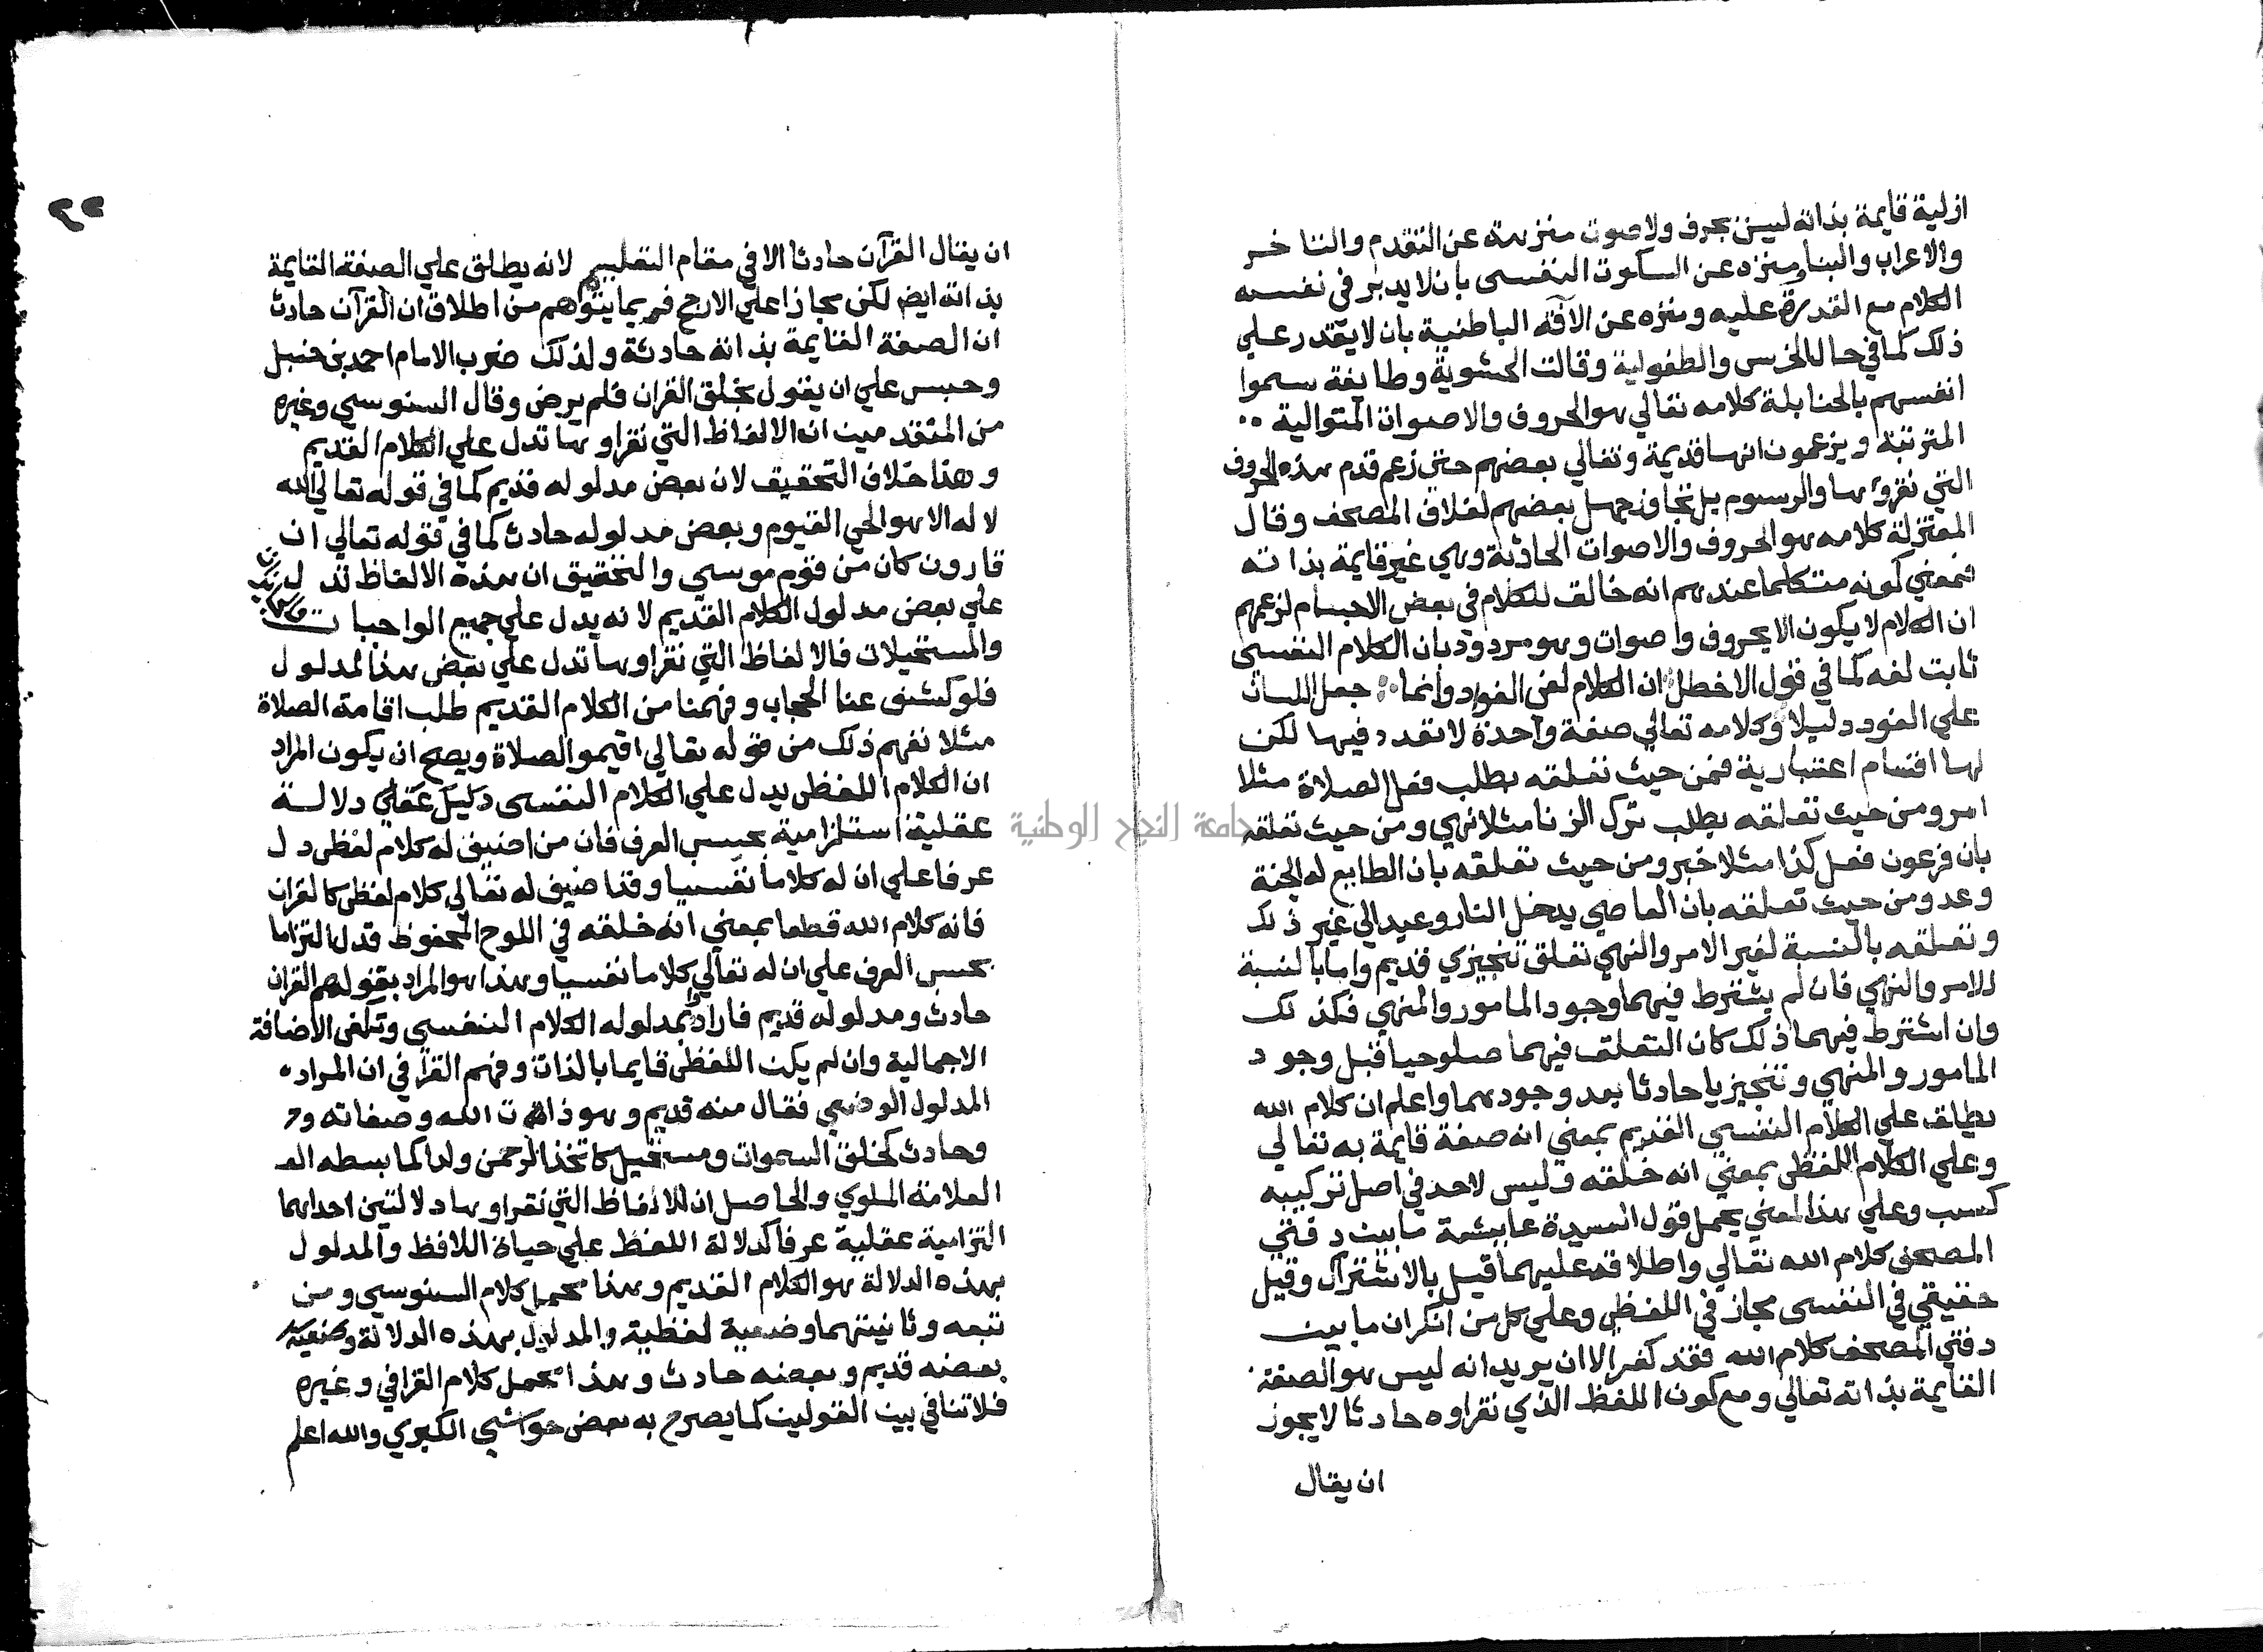 ازلية قايمة بذاته ليس بحرف ولا صوت منزهة عن التقدم والتاخر
والاعراب والبنا ومنزه عن السكوت النفسى بان لا يدبر في نفسه
الكلام مع القدرة عليه ومنزه عن الآفة الباطنية بان لا يقدر علي
ذلك كما في حال الخرس والطفولية وقالت الحشوية وطايفة سموا
انفسهم بالحنابلة كلامه تعالي هو الحروف والاصوات المتوالية ..
المترتبة ويزعمون انها قديمة وتغالي بعضهم حتى زعم قدم هذه الحروف
التي نقروها والرسوم بل تجاوز جهل بعضهم لغلاف المصحف وقال
المعتزلة كلامه هو الحروف والاصوات الحادثة وهي غير قايمة بذاته
فمعني كونه متكلما عندهم انه خالق للكلام في بعض الاجسام لزعمهم
ان الكلام لا يكون الا بحروف واصوات وهو مردود بان الكلام النفسى
ثابت لغه كما في قول الاخطل ان الكلام لفي الفواد وانما جعل اللسان
علي الفود دليلا وكلامه تعالي صفة واحدة لا تعدد فيها لكن
لها اقسام اعتبارية فمن حيث تعلقه بطلب فعل الصلاة مثلا
امر ومن حيث تعلقه بطلب ترك الزنا مثلا نهي ومن حيث تعلقه
بان فرعون فعل كذا مثلا خبر ومن حيث تعلقه بان الطايع له الجنة
وعد ومن حيث تعلقه بان العاصي يدخل النار وعيد الى غير ذلك
وتعلقه بالنسبة لغير الامر والنهي تعلق تنجيزي قديم واما بالنسبة
للامر والنهي فان لم يشترط فيهما وجود المامور والمنهي فكذلك
وان اشترط فيهما ذلك كان التعلق فيهما صلوحيا قبل وجود
المامور والمنهي وتنجيزيا حادثا بعد وجودهما واعلم ان كلام الله
يطلق علي الكلام النفسى القديم بمعني انه صفة قايمة به تعالي
وعلي الكلام اللفظى بمعني انه خلقه وليس لاحد في اصل تركيبه
كسب وعلي هذا المعني يحمل قول السيدة عايشة ما بين دفتي
المصحف كلام الله تعالي واطلاقه عليهما قيل بالاشتراك وقيل
حقيقي في النفسى مجاز في اللفظى وعلي كل من انكر ان ما بين
دفتي المصحف كلام الله فقد كفر الا ان يريد انه ليس هو الصفة
القايمة بذاته تعالي ومع كون اللفظ الذي نقراوه حادثا لا يجوز
ان يقال
٢٢
ان يقال القرآن حادثا الا في مقام التعليم لانه يطلق علي الصفة القايمة
بذاته ايض لكن مجازا علي الارجح فربما يتوهم من اطلاق ان القرآن حادث
ان الصفة القايمة بذاته حادثة ولذلك ضرب الامام احمد بن حنبل
وحبس علي ان يقول بخلق القران فلم يرض وقال السنوسي وغيره
من المتقدمين ان الالفاظ التي نقراوها تدل علي الكلام القديم
وهذا خلاف التحقيق لان بعض مدلوله قديم كما في قوله تعالي الله
لا له الا هو الحي القيوم وبعض مدلوله حادث كما في قوله تعالي ان
قارون كان من قوم موسي والتحقيق ان هذه الالفاظ تدل
علي بعض مدلول الكلام القديم لانه يدل علي جميع الواجبات
والمستحيلات فالالفاظ التي نقراوها تدل علي بعض هذا المدلول
فلو كشف عنا الحجاب وفهمنا من الكلام القديم طلب اقامة الصلاة
مثلا نفهم ذلك من قوله تعالي اقيمو الصلاة ويصح ان يكون المراد
ان الكلام اللفظى يدل علي الكلام النفسى دليل عقلي دلالة
عقلية استلزامية بحسب العرف فان من اضيف له كلام لفظى دل
عرفا علي ان له كلاما نفسيا وقد اضيف له تعالي كلام لفظى كالقران
فانه كلام الله قطعا بمعني انه خلقه في اللوح المحفوظ فدل التزاما
بحسب العرف علي ان له تعالي كلاما نفسيا وهذا هو المراد بقولهم القران
حادث ومدلوله قديم فارادو بمدلوله الكلام النفسي وتكفى الاضافة
الاجمالية وان لم يكن اللفظى قايما بالذات وفهم القرافي ان المراد
المدلول الوضعي فقال منه قديم وهو ذات الله وصفاته و
وحادث كخلق السموات ومستحيل كاتخذ الرحمن ولدا كما بسطه الع
العلامة الملوي والحاصل ان للالفاظ التي نقراوها دلالتين احداهما
التزامية عقلية عرفا كدلالة اللفظ علي حياة اللافظ والمدلول
بهذه الدلالة هو الكلام القديم وهذا محمل كلام السنوسي ومن
تبعه وثانيتهما وضعية لفظية والمدلول بهذه الدلالة وضعية
بعضه قديم وبعضه حادث وهذا محمل كلام القرافي وغيره
فلا تنافي بين القولين كما يصرح به بعض حواشي الكبري والله اعلم
جامعة النجاح الوطنية